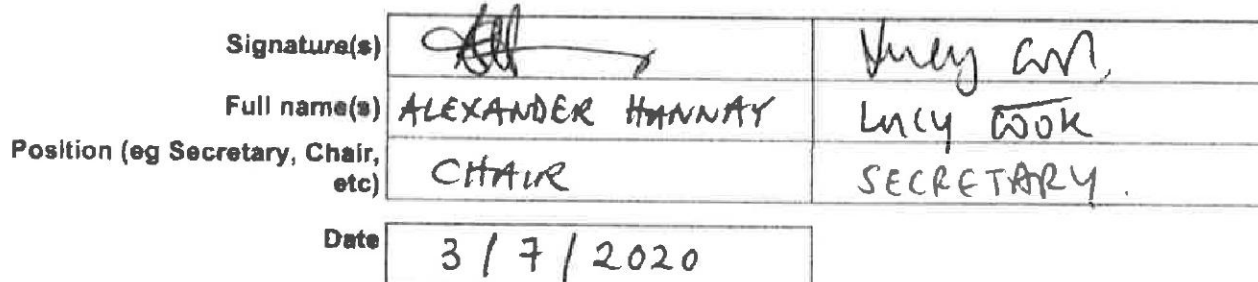 Signature(s) Lucy
Full name(s) ALEXANDER HANNAY Lucy Cook
Position (eg Secretary, Chair,
etc) CHAIR SECRETARY.
Date 3/7/2020